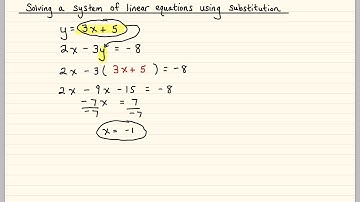 Solving a system of linear equations using substitution
y = 3x + 5
2x - 3y = -8
2x - 3( 3x + 5 ) = -8
2x - 9x - 15 = -8
-7x = 7
-7 -7
x = -1